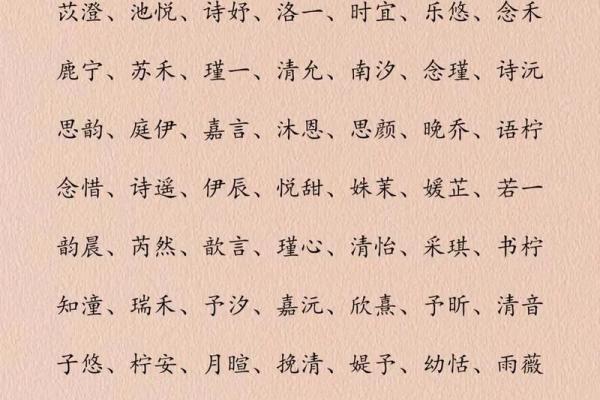 苡澄、池悦、诗妤、洛一、时宜、乐悠、念禾
鹿宁、苏禾、瑾一、清允、南汐、念瑾、诗沅
思韵、庭伊、嘉言、沐恩、思颜、晚乔、语柠
念惜、诗遥、伊辰、悦甜、姝茉、媛芷、若一
韵晨、芮然、歆言、瑾心、清怡、采琪、书柠
知潼、瑞禾、予汐、嘉沅、欣熹、予昕、清音
子悠、柠安、月暄、挽清、媞予、幼恬、雨薇